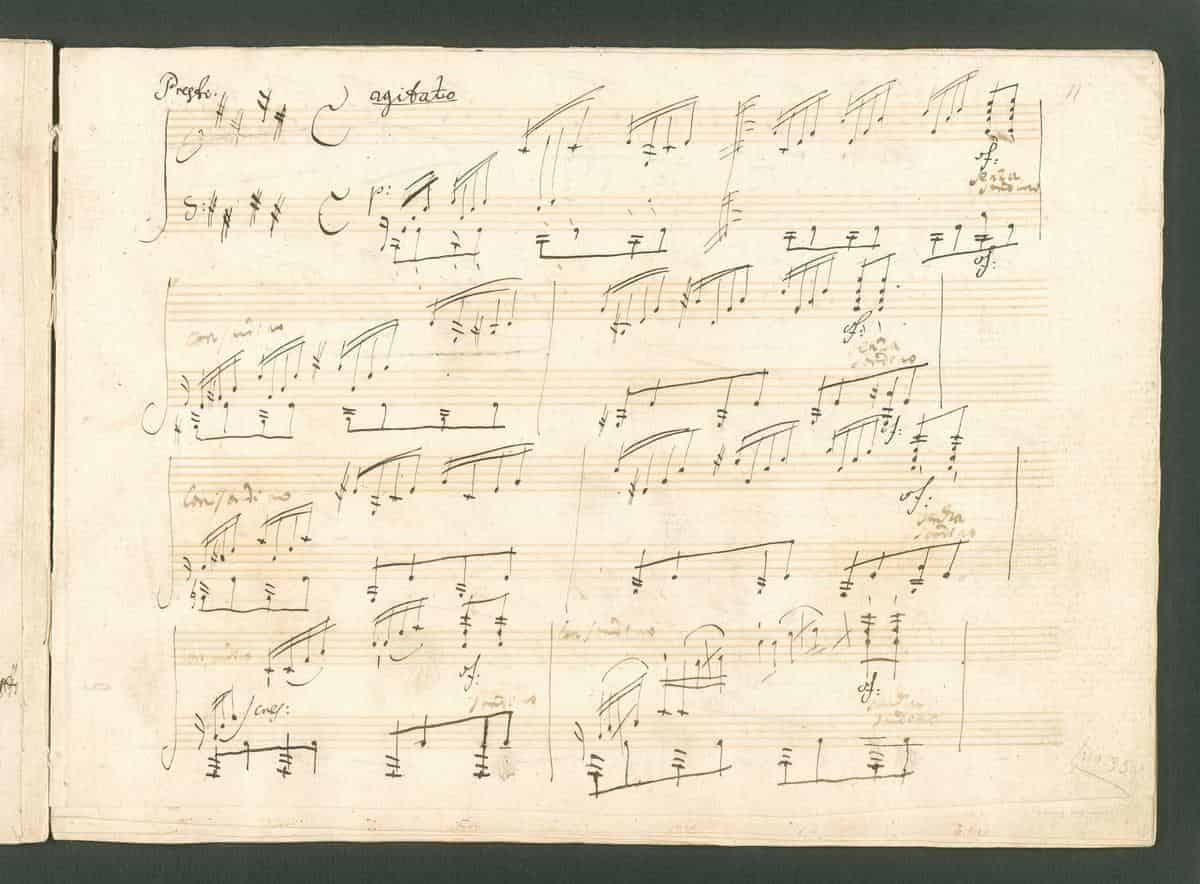 Presto. agitato
11
p:
sf:
Senza
sordino
sf:
con sordino
sf:
senza
sordino
sf:
Con sordino
sf:
senza
sordino
cresc:
sf:
sordino
con sordino
sf:
senza
sordino